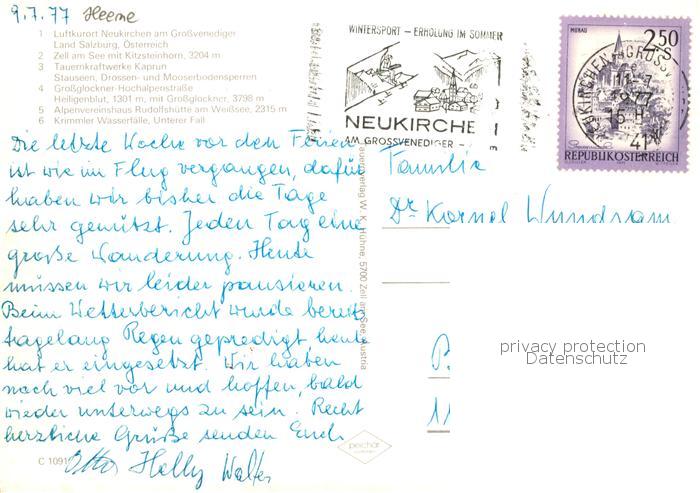 9.7.77 Heeme
1 Luftkurort Neukirchen am Großvenediger
Land Salzburg, Österreich
2 Zell am See mit Kitzsteinhorn, 3204 m
3 Tauernkraftwerke Kaprun
Stauseen, Drossen- und Mooserbodensperren
4 Großglockner-Hochalpenstraße
Heiligenblut, 1301 m, mit Großglockner, 3798 m
5 Alpenvereinshaus Rudolfshütte am Weißsee, 2315 m
6 Krimmler Wasserfälle, Unterer Fall
Die letzte Woche vor den Ferien
ist wie im Flug vergangen, dafür
haben wir bisher die Tage
sehr genützt. Jeden Tag eine
große Wanderung. Heute
müssen wir leider pausieren.
Beim Wetterbericht wurde bereits
tagelang Regen gepredigt, heute
hat er eingesetzt. Wir haben
noch viel vor und hoffen, bald
wieder unterwegs zu sein. Recht
herzliche Grüße senden Euch
Otto Helly Walter
C 1091
verlag W. K. Hühne, 5700 Zell am See, Austria
peichär
WINTERSPORT – ERHOLUNG IM SOMMER
NEUKIRCHE
AM GROSSVENEDIGER -
MURAU
2.50
REPUBLIK ÖSTERREICH
NEUKIRCHEN
11.-7.
1977
15 H
41
Familie
Dr. Kornel Wundsam
P
11
privacy protection
Datenschutz